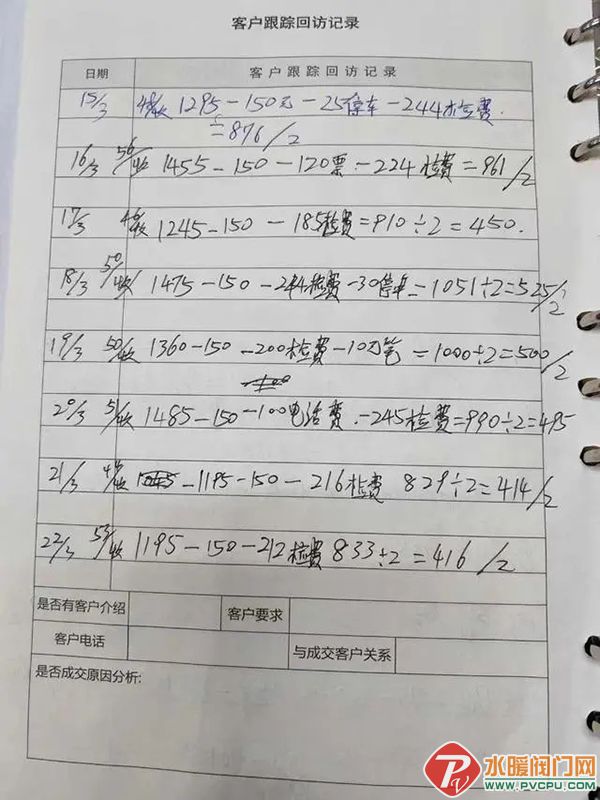 客户跟踪回访记录
日期 客户跟踪回访记录
15/3 1295-150元-25停车-244检费.
=876/2
16/3 56/收 1455-150-120票-224检费=961/2
17/3 1245-150-185检费=910÷2=450.
18/3 50/收 1475-150-244检费-30停车=1051÷2=525/2
19/3 50/收 1360-150-200检费-10刀笔=1000÷2=500/2
20/3 51/收 1485-150-100电话费-245检费=990÷2=495
21/3 -1195-150-216检费 829÷2=414/2
22/3 53/收 1195-150-212检费 833÷2=416/2
是否有客户介绍 客户要求
客户电话 与成交客户关系
是否成交原因分析:
水暖阀门网
WWW.PVCPU.COM